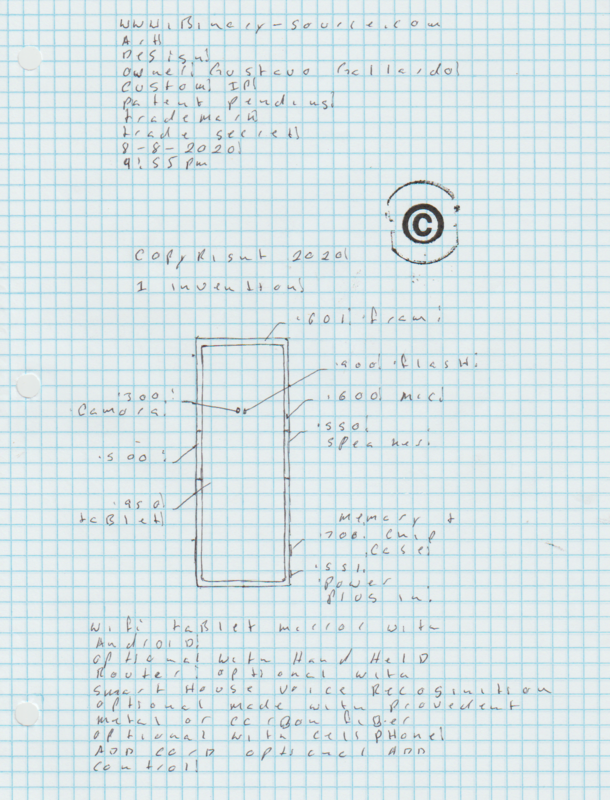 www.iBinary-source.com
Art
Design
owner: Gustavo Gallardo
Custom IP
patent pending
trademark
trade secret
8-8-2020
9:55pm
©
CopyRight 2020
1 invention
.601 fram
.900 flash
.300
Camora
.600 mic
.550
speaker
.500
.950
tablet
memory +
.700 chip
case
.551
power
plug in
wifi tablet mirror with
Android
optional with Hand Held
Router optional with
Smart House Voice Recoginition
optional made with provedent
metal or carbon fiber
optional with cellphone
ADD card optional ADD
control